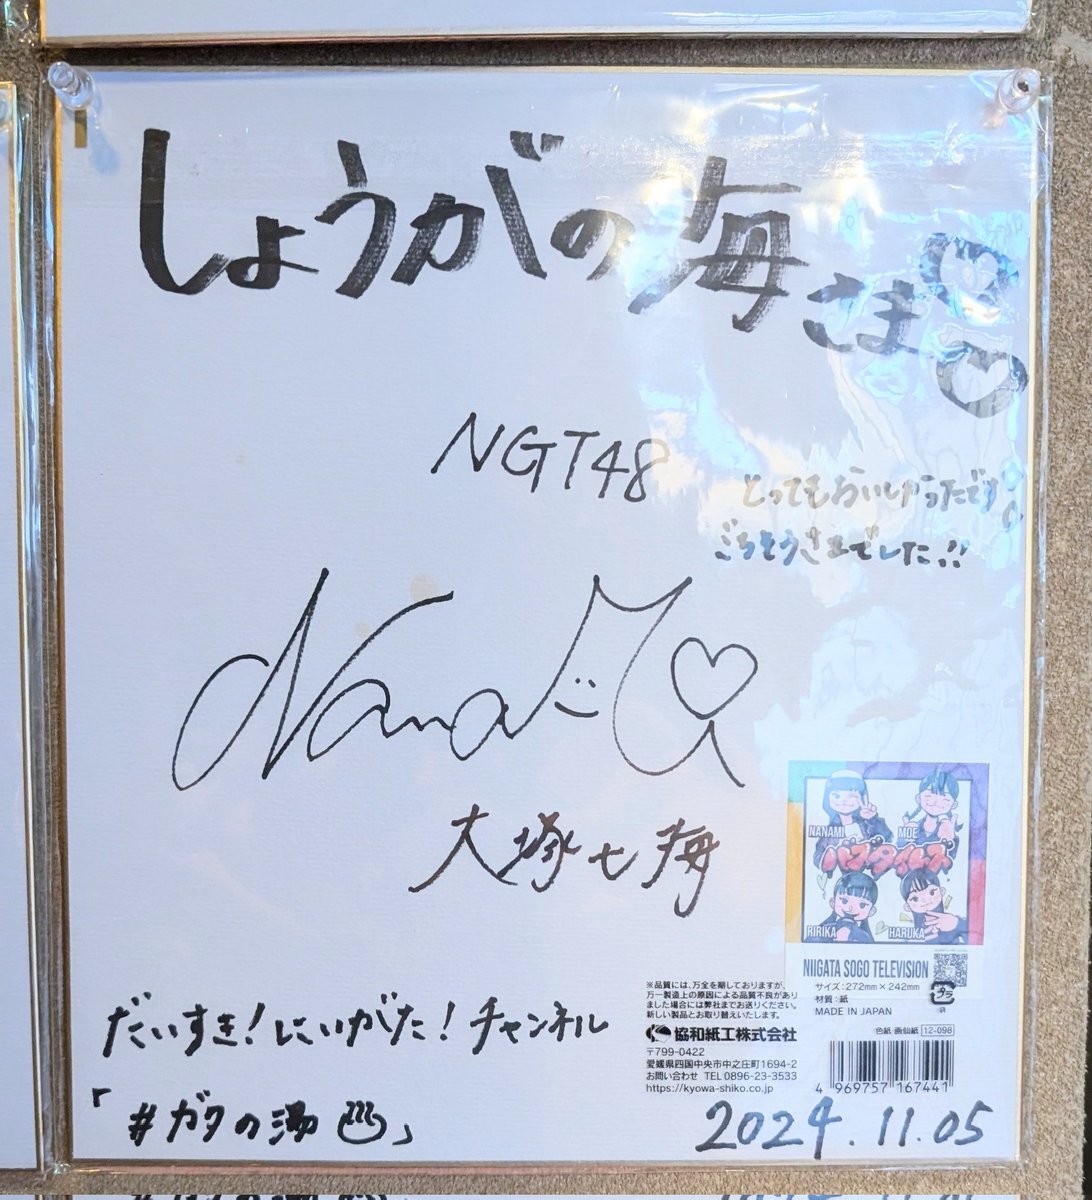 しょうがの海さま
NGT48
とってもおいしかったです
ごちそうさまでした!!
大塚七海
NANAMI
MOE
バズタイムズ
RIRIKA
HARUKA
NIIGATA SOGO TELEVISION
サイズ:272mm×242mm
材質:紙
プラ
MADE IN JAPAN
※品質には、万全を期しておりますが、
万一製造上の原因による品質不良があり
ました場合には弊社までお送りください。
新しい製品とお取り替えいたします。
協和紙工株式会社
〒799-0422
愛媛県四国中央市中之庄町1694-2
お問い合わせ TEL 0896-23-3533
https://kyowa-shiko.co.jp
色紙 画仙紙 12-098
4 969757 167441
だいすき!にいがた!チャンネル
「#ガタの湯♨」
2024.11.05